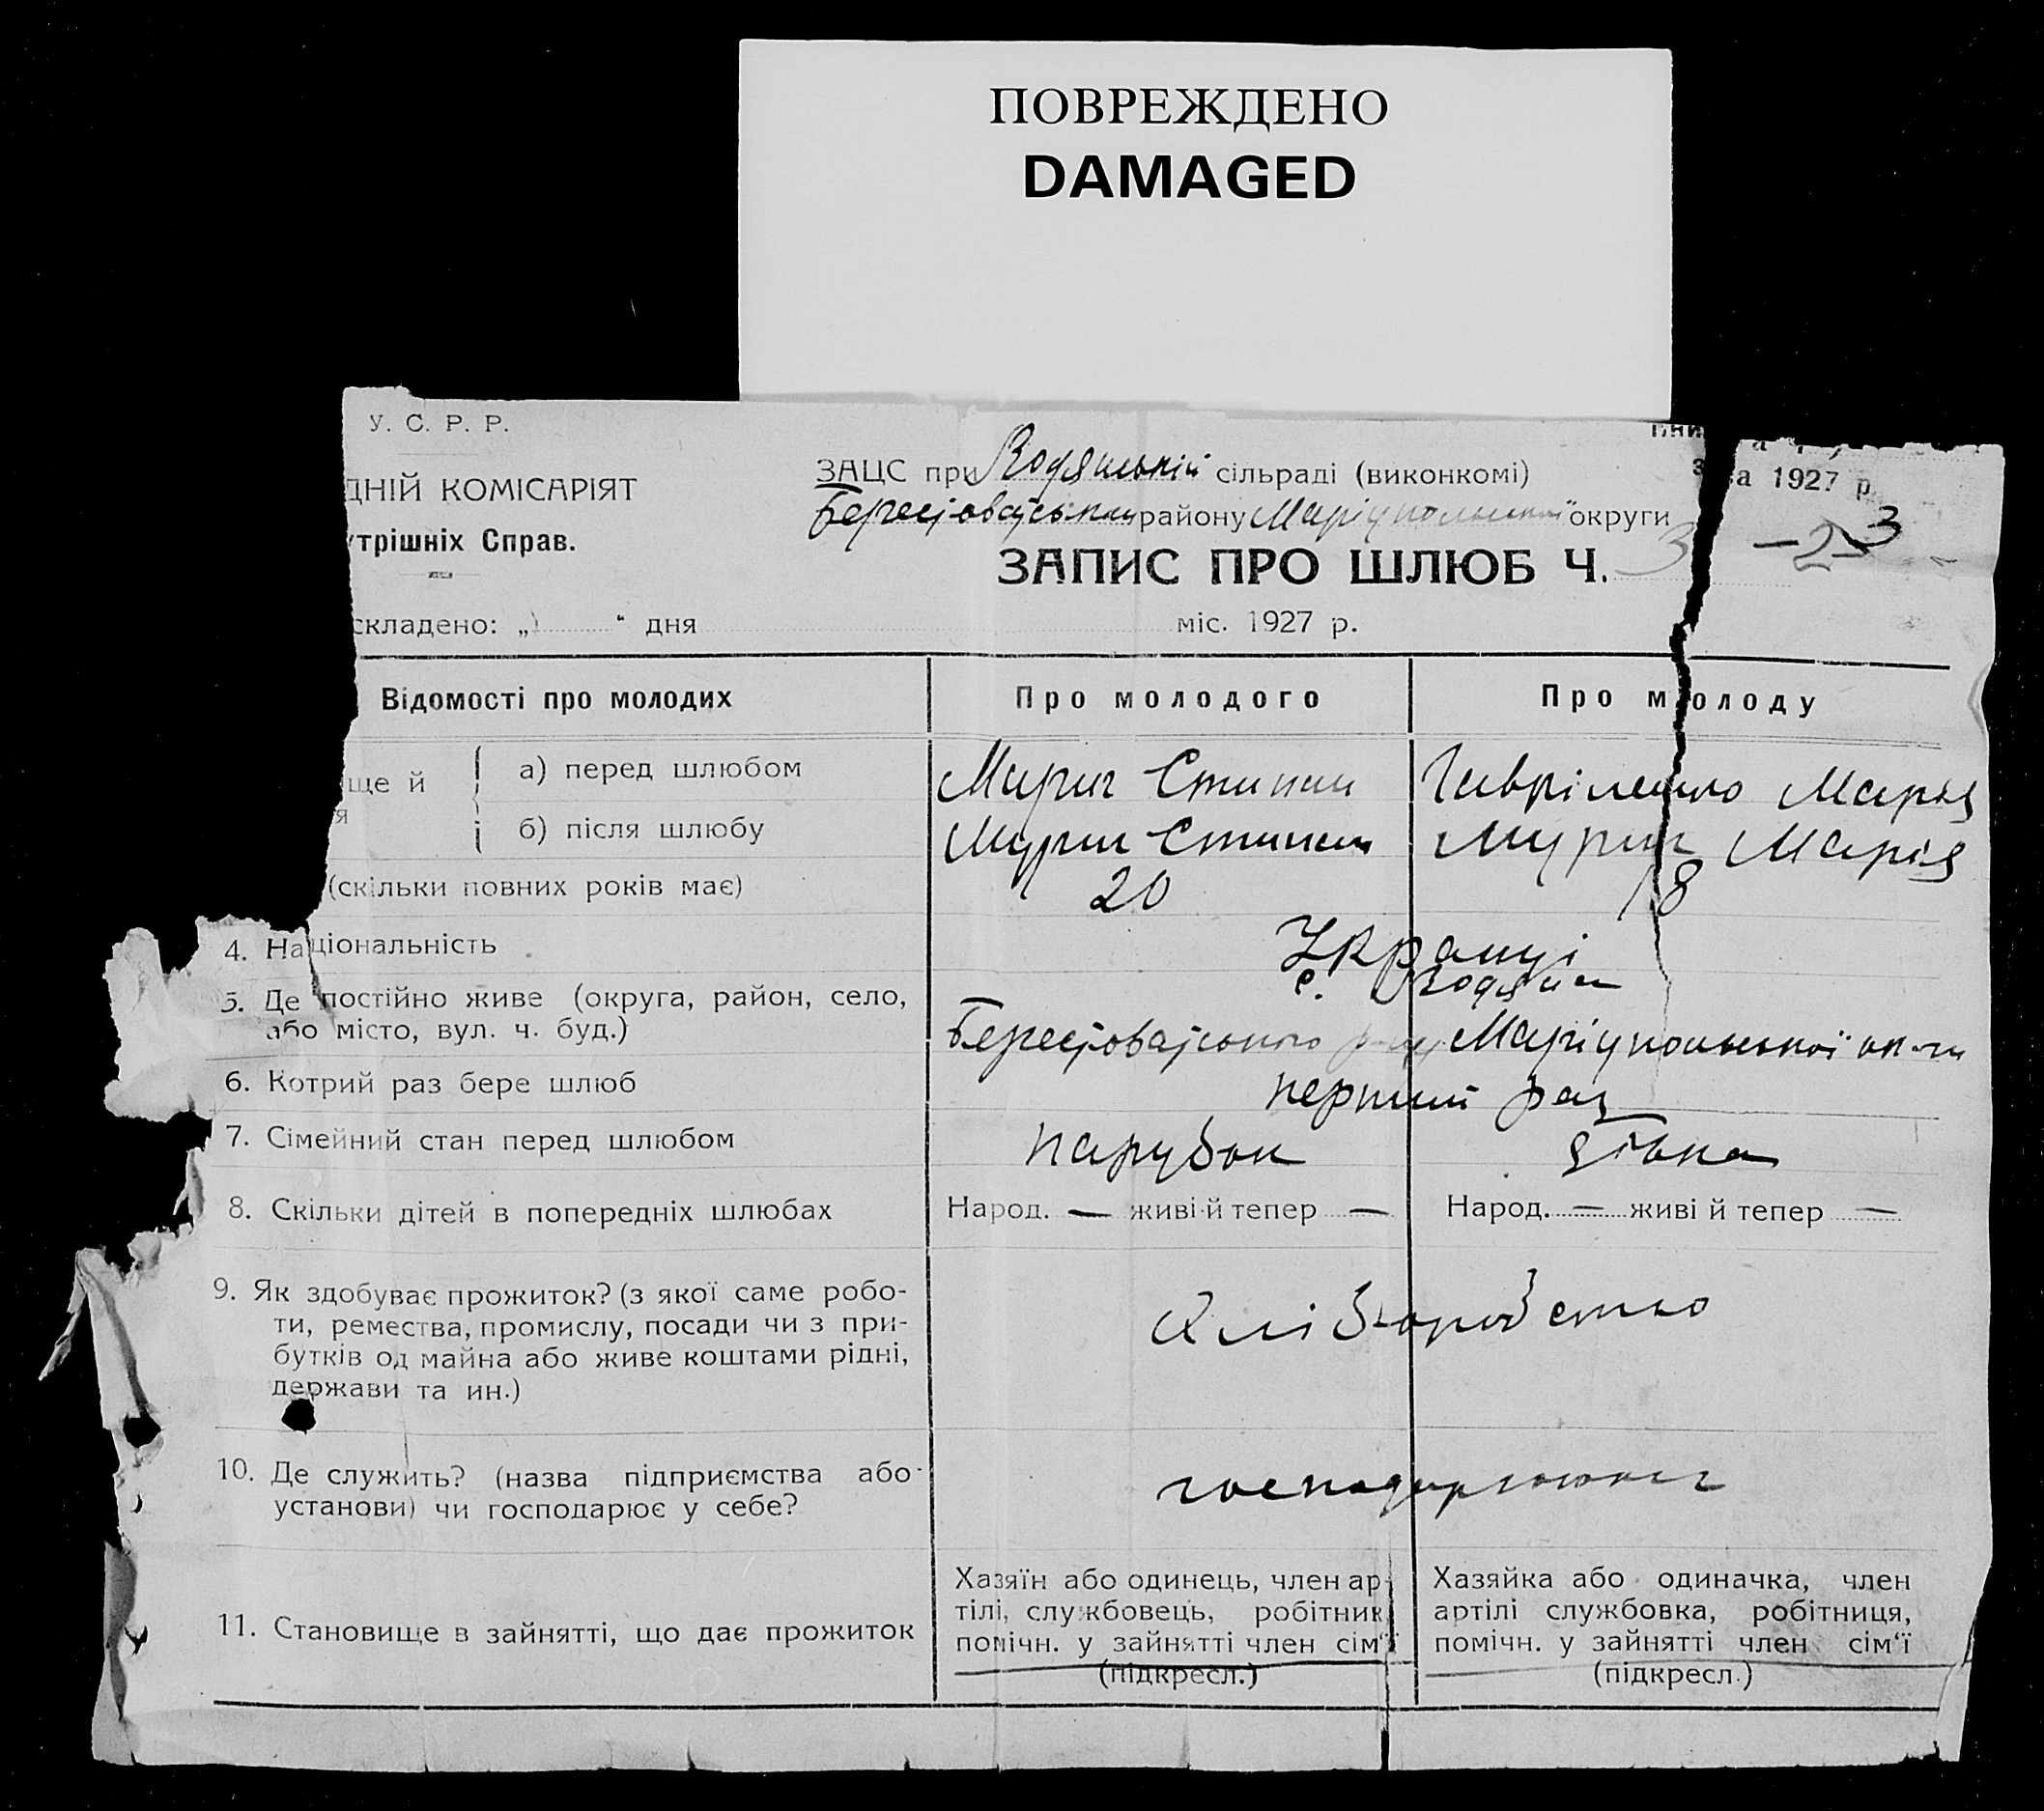 ПОВРЕЖДЕНО
DAMAGED
У. С. Р. Р.
ДНІЙ КОМІСАРІЯТ
утрішніх Справ.
ЗАЦС при Водянській сільраді (виконкомі)
району Маріупольської округи
за 1927 р.
3
ЗАПИС ПРО ШЛЮБ Ч. 3
складено: „ “ дня міс. 1927 р.
Відомості про молодих Про молодого Про молоду
ще й а) перед шлюбом Степан Марія
я б) після шлюбу Степан Марія
(скільки повних років має) 20 18
4. Національність Українці
5. Де постійно живе (округа, район, село, с. Водяна
або місто, вул. ч. буд.) Маріупольської
6. Котрий раз бере шлюб перший раз
7. Сімейний стан перед шлюбом парубок дівка
8. Скільки дітей в попередніх шлюбах Народ. — живі й тепер — Народ. — живі й тепер —
9. Як здобуває прожиток? (з якої саме робо-
ти, ремества, промислу, посади чи з при-
бутків од майна або живе коштами рідні,
держави та ин.)
хліборобство
10. Де служить? (назва підприємства або
установи) чи господарює у себе?
11. Становище в зайнятті, що дає прожиток
Хазяїн або одинець, член ар-
тілі, службовець, робітник
помічн. у зайнятті член сім‘ї
(підкресл.)
Хазяйка або одиначка, член
артілі службовка, робітниця,
помічн. у зайнятті член сім‘ї
(підкресл.)